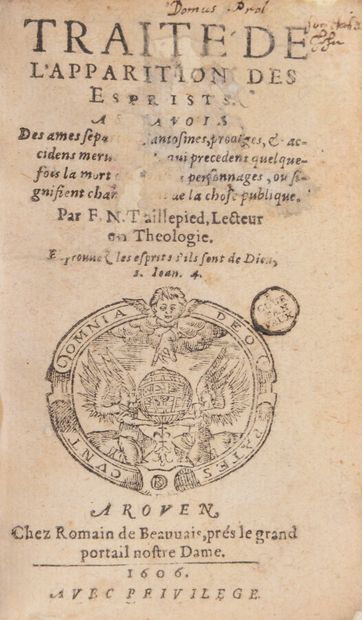 Domus Prof
TRAITÉ DE
L'APPARITION DES
ESPRISTS.
A S AVOIS
Des ames sepa antosmes, prodiges, & ac-
cidens merv qui precedent quelque-
fois la mort personnages, ou si-
gnifient chan de la chose publique.
Par F. N. Taillepied, Lecteur
en Theologie.
Eprouvez les esprits s'ils sont de Dieu,
1. Ioan. 4.
OMNIA DEO
CVNT PATES
A ROVEN,
Chez Romain de Beauuais, prés le grand
portail nostre Dame.
1606.
AVEC PRIVILEGE.